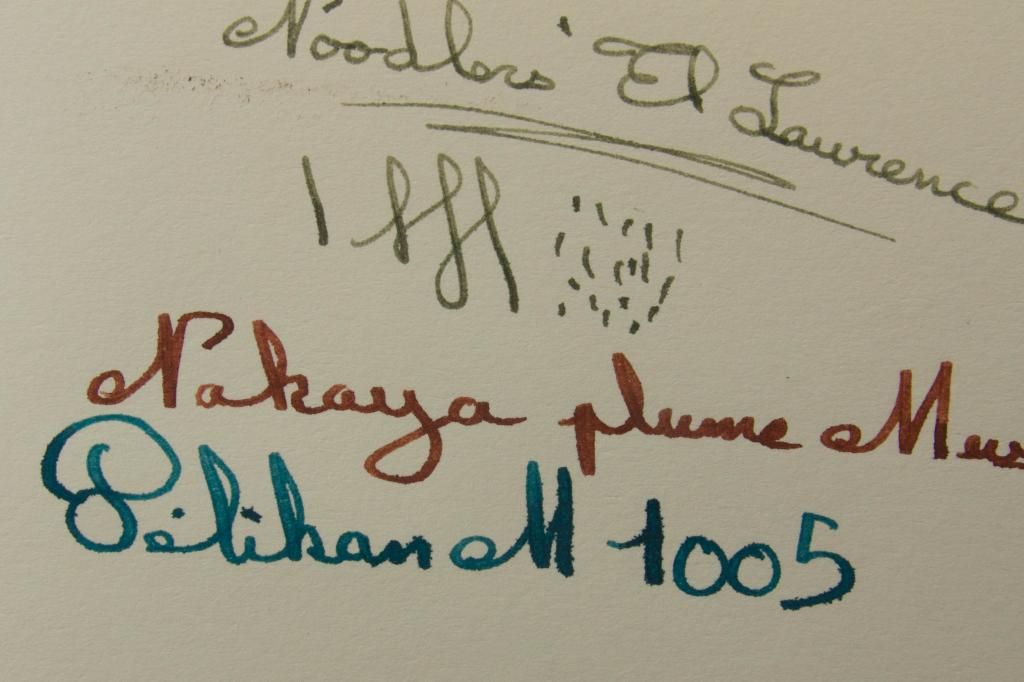 Noodlers' El Lawrence
Nakaya plume Mus
Pélikan M 1005